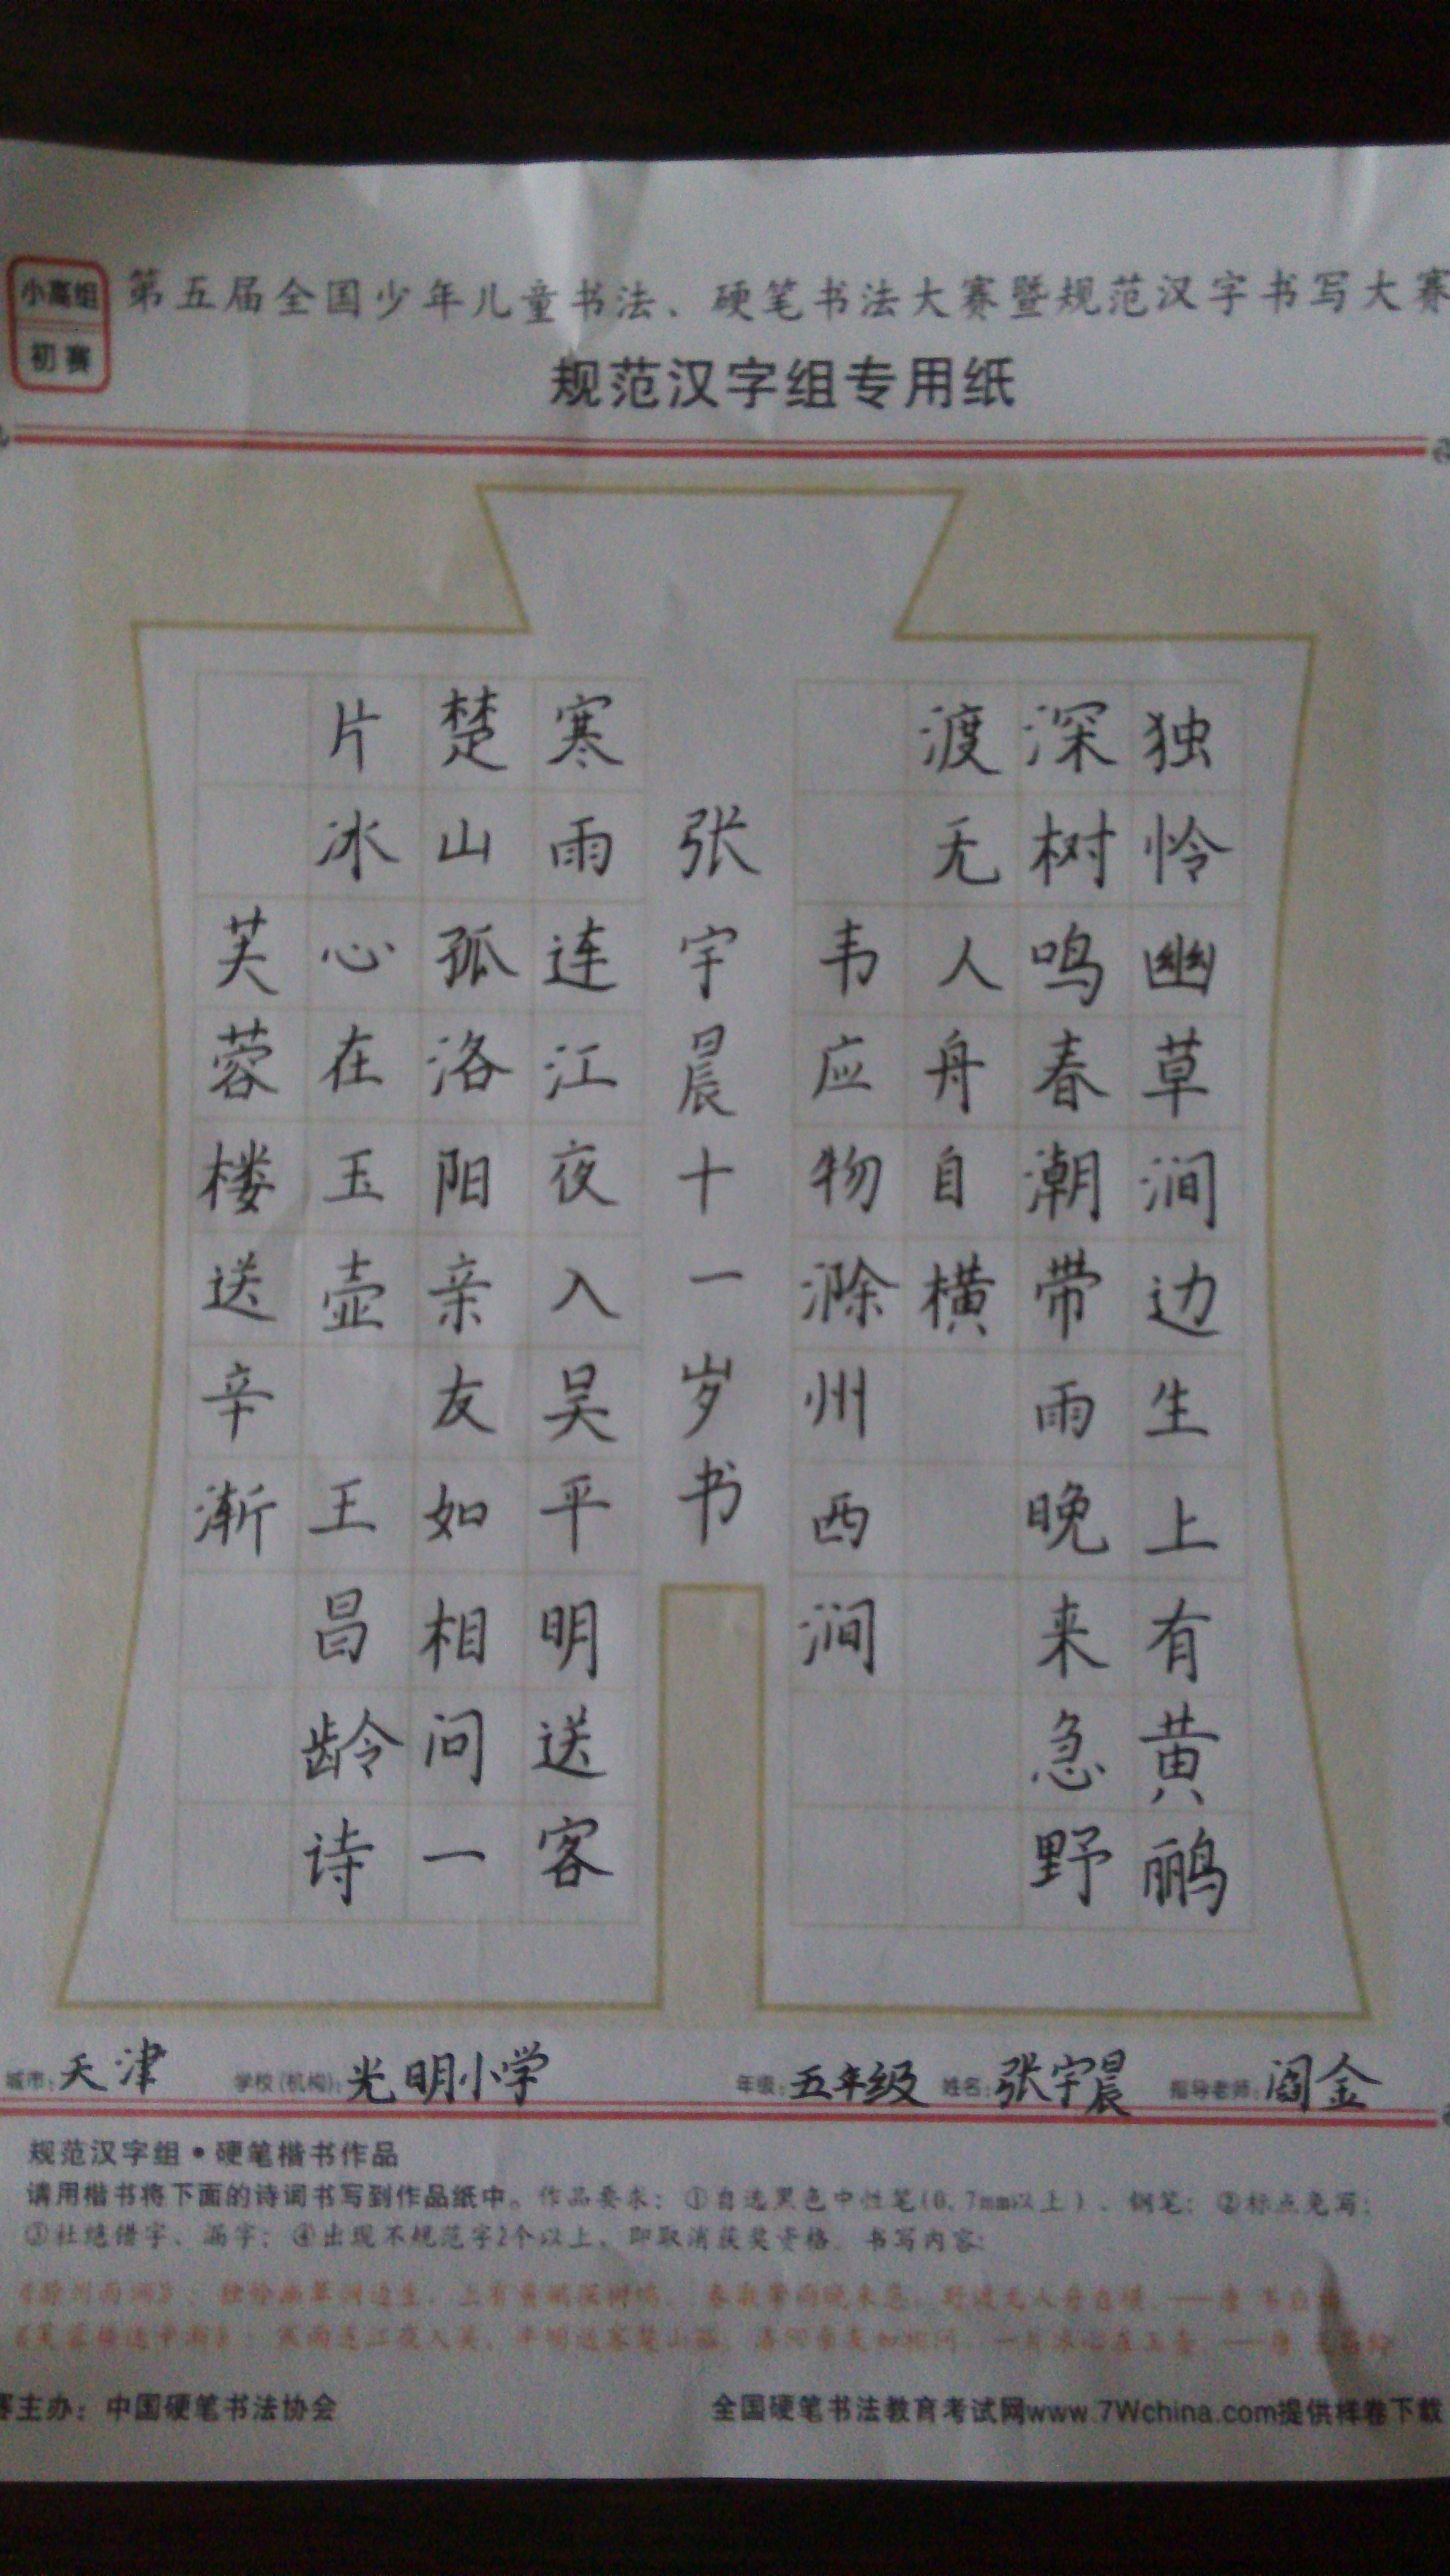 小高组
初赛
第五届全国少年儿童书法、硬笔书法大赛暨规范汉字书写大赛
规范汉字组专用纸
独怜幽草涧边生上有黄鹂
深树鸣春潮带雨晚来急野
渡无人舟自横
韦应物滁州西涧
张宇晨十一岁书
寒雨连江夜入吴平明送客
楚山孤洛阳亲友如相问一
片冰心在玉壶 王昌龄诗
芙蓉楼送辛渐
城市:天津 学校(机构):光明小学 年级:五年级 姓名:张宇晨 指导老师:阎金
规范汉字组•硬笔楷书作品
请用楷书将下面的诗词书写到作品纸中。作品要求:①自选黑色中性笔(0.7mm以上)、钢笔;②标点免写;
③杜绝错字、漏字;④出现不规范字2个以上,即取消获奖资格。书写内容:
《滁州西涧》:独怜幽草涧边生,上有黄鹂深树鸣。春潮带雨晚来急,野渡无人舟自横。——唐 韦应物
《芙蓉楼送辛渐》:寒雨连江夜入吴,平明送客楚山孤。洛阳亲友如相问,一片冰心在玉壶。——唐 王昌龄
赛主办:中国硬笔书法协会 全国硬笔书法教育考试网www.7Wchina.com提供样卷下载